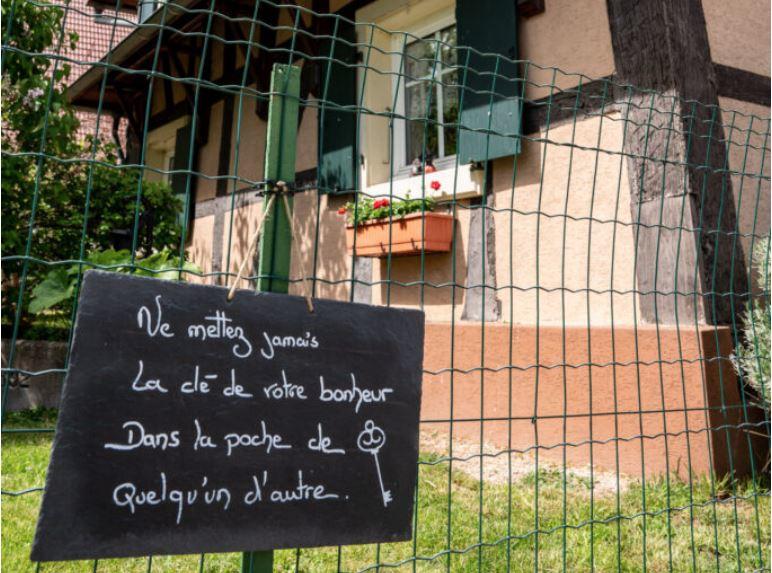 Ne mettez jamais
La clé de votre bonheur
Dans la poche de
Quelqu'un d'autre.